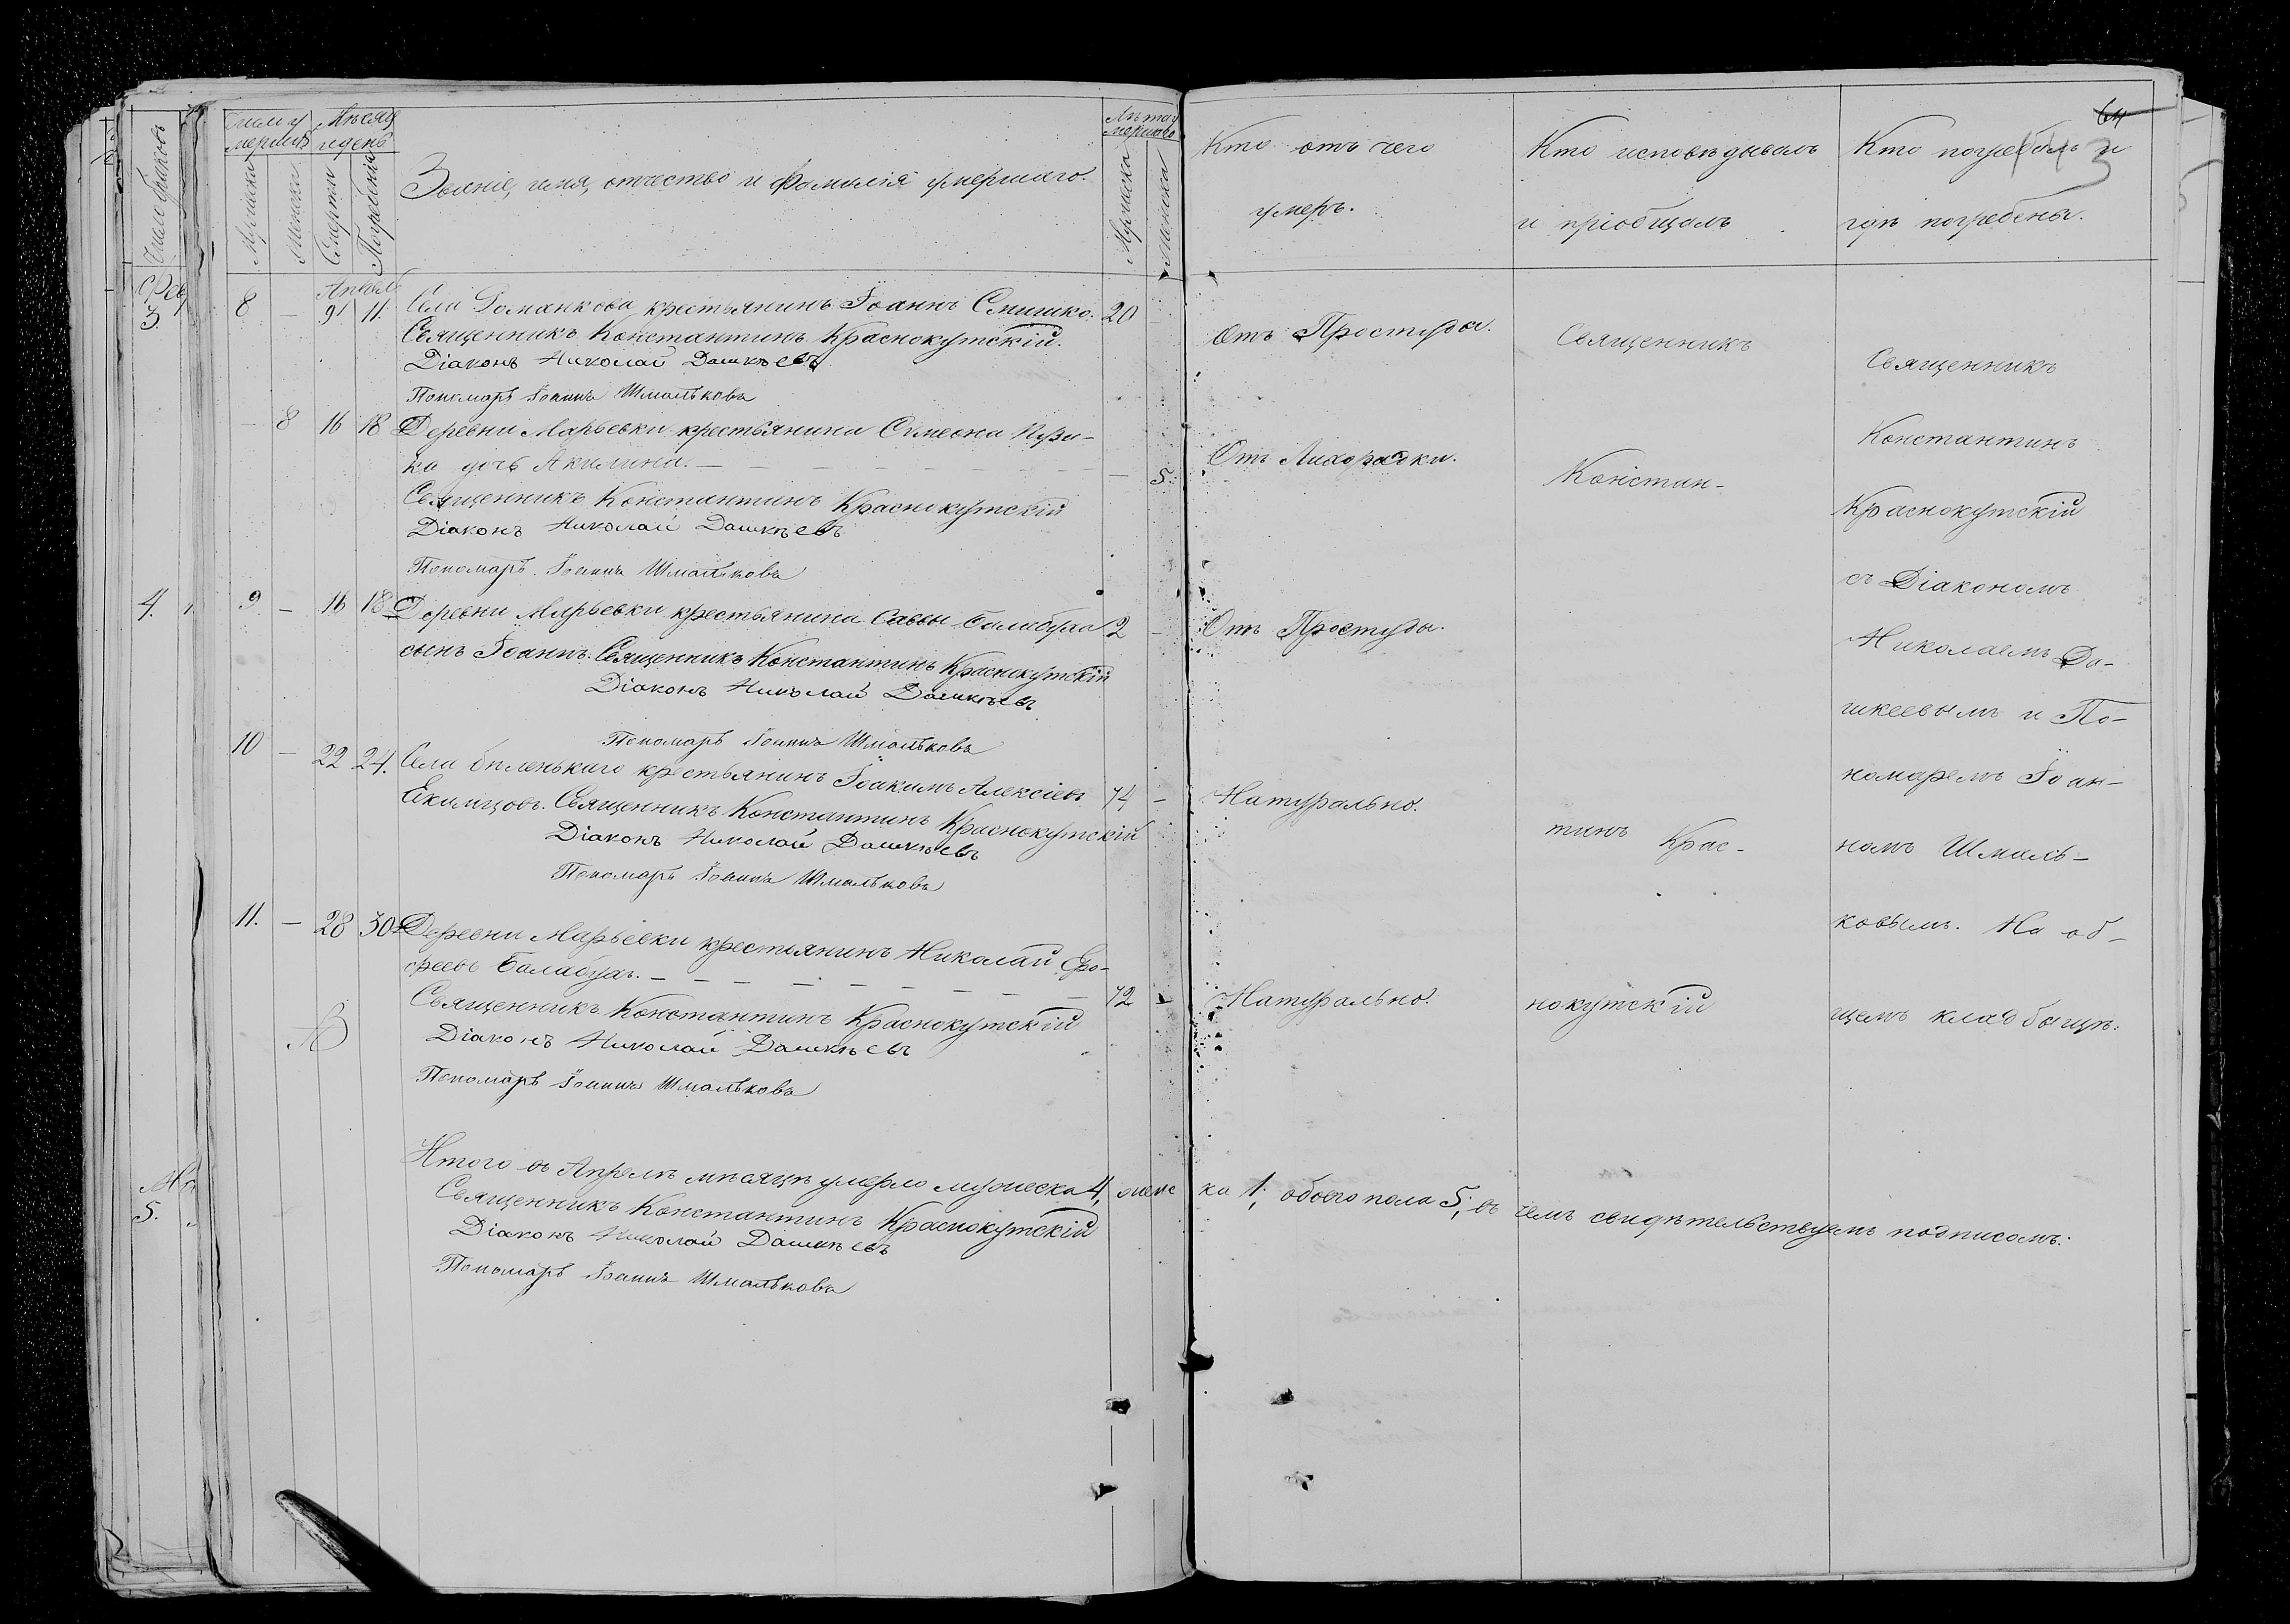 Число у
мершихъ
Мѣсяц
и день
Мужеска
Женска
Смерти
Погребенія
Званіе, имя, отчество и фамилія умершаго.
Лѣта у
мершаго
Мужеска
Женска
Кто отъ чего
умеръ.
Кто исповѣдывалъ
и пріобщалъ
Кто погребалъ и
гдѣ погребены.
64
143
Число браковъ
Фев
3.
Апрель
8 – 9 11. Села Романкова крестьянинъ Іоаннъ Смишко. 20
Священникъ Константинъ Краснокутскій.
Діаконъ Николай Дашкѣевъ
Пономарь Іоаннъ Шмальковъ
Отъ Простуды.
– 8 16 18 Деревни Марьевки крестьянина Симеона
ка дочь Акилина. – 5.
Священникъ Константинъ Краснокутскій
Діаконъ Николай Дашкѣевъ
Пономарь Іоаннъ Шмальковъ
Отъ Лихорадки.
4.
9 – 16 18 Деревни Марьевки крестьянина Саввы Балабуха 2 –
сынъ Іоаннъ. Священникъ Константинъ Краснокутскій
Діаконъ Николай Дашкѣевъ
Пономарь Іоаннъ Шмальковъ
Отъ Простуды.
10 – 22 24. Села бѣленькаго крестьянинъ Іоакимъ Алексіевъ 74 –
Екимцовъ. Священникъ Константинъ Краснокутскій
Діаконъ Николай Дашкѣевъ
Пономарь Іоаннъ Шмальковъ
Натурально.
11. – 28 30 Деревни Марьевки крестьянинъ Николай Еро-
феевъ Балабуха. – 72 –
Священникъ Константинъ Краснокутскій
Діаконъ Николай Дашкѣевъ
Пономарь Іоаннъ Шмальковъ
Натурально.
Священникъ
Констан-
тинъ Крас-
нокутскій
Священникъ
Константинъ
Краснокутскій
съ Діакономъ
Николаемъ Да-
шкеевымъ и По-
номаремъ Іоан-
номъ Шмаль-
ковымъ. На об-
щемъ кладбыщѣ.
5.
Итого въ Апрелѣ мѣсяцѣ умерло мужеска 4, женска 1, обоего пола 5; въ чемъ свидѣтельствуемъ подписомъ:
Священникъ Константинъ Краснокутскій
Діаконъ Николай Дашкѣевъ
Пономарь Іоаннъ Шмальковъ